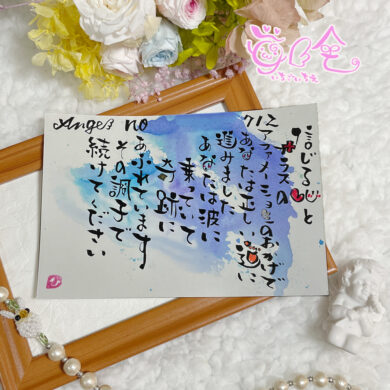 Angel no 712
信じる心と
プラスの
アファメーションのおかげで
あなたは正しい道に
進みました
あなたは波に
乗っていて
奇跡に
あふれています
その調子で
続けてください